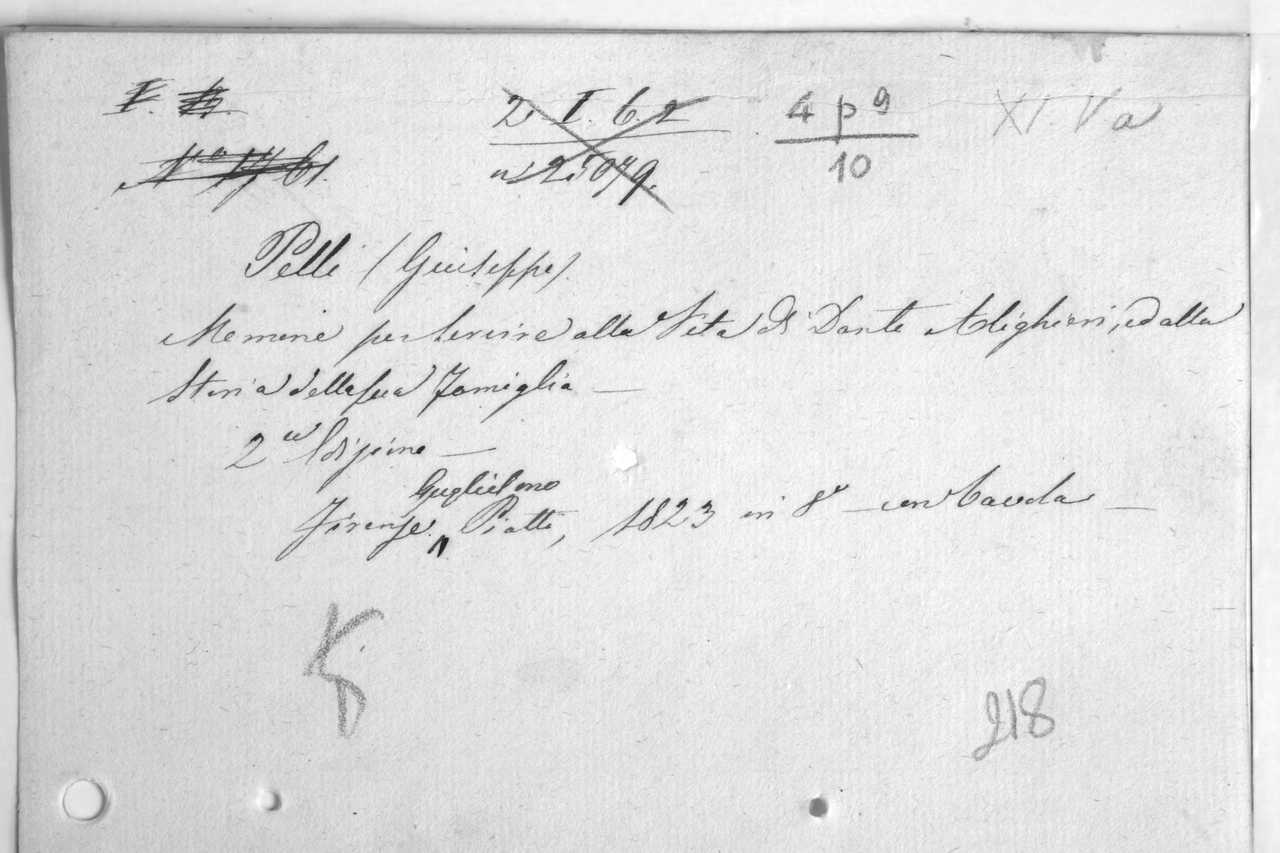 2 I. 6. 2 4 p 9 XI. V a
n 25079. 10
Pelli (Giuseppe)
Memorie per servire alla Vita di Dante Alighieri, ed alla
Storia della sua Famiglia —
2ª Edizione —
Guglielmo
Firenze, Piatti, 1823 in 8º — con tavola —
218